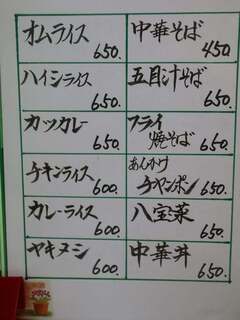 オムライス 650.
中華そば 450
ハイシライス 650.
五目汁そば 650.
カツカレー 650
フライ
焼そば 650.
チキンライス 600.
あんかけ
チャンポン 650.
カレーライス 600.
八宝菜 650.
ヤキメシ 600.
中華丼 650.